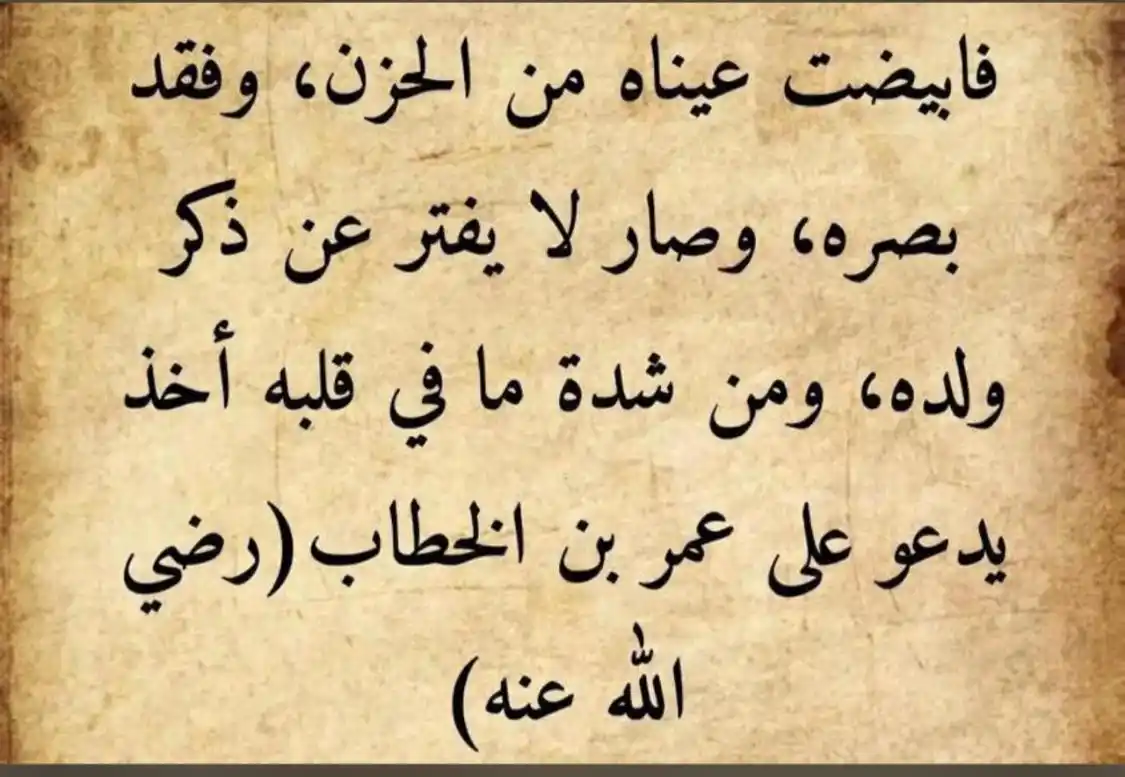 فابيضت عيناه من الحزن، وفقد
بصره، وصار لا يفتر عن ذكر
ولده، ومن شدة ما في قلبه أخذ
يدعو على عمر بن الخطاب (رضي
الله عنه)